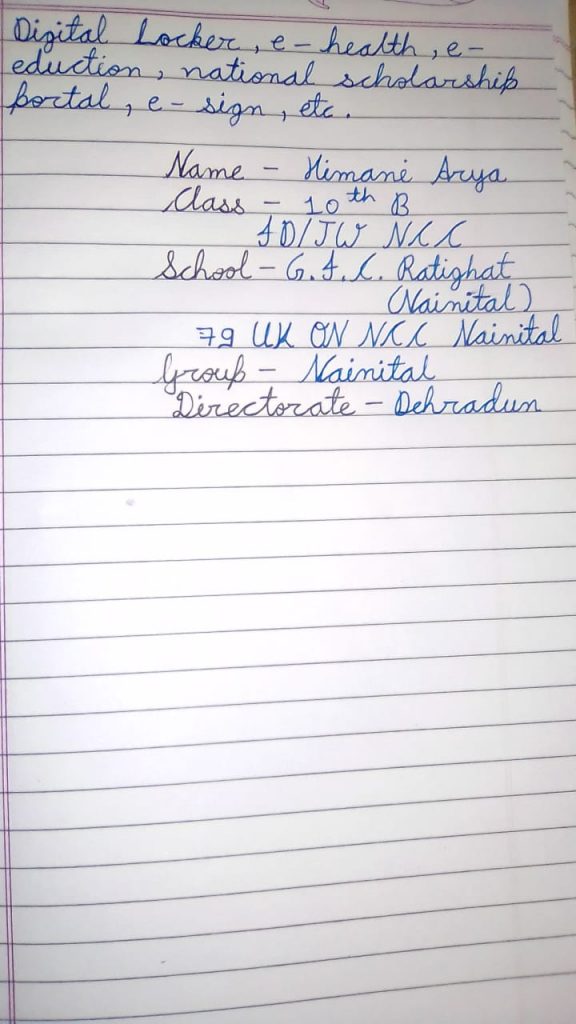 Digital Locker, e-health, e-
eduction, national scholarship
portal, e-sign, etc.
Name - Himani Arya
Class - 10th B
JD/JW NCC
School - G.I.C. Ratighat
(Nainital)
79 UK ON NCC Nainital
Group - Nainital
Directorate - Dehradun